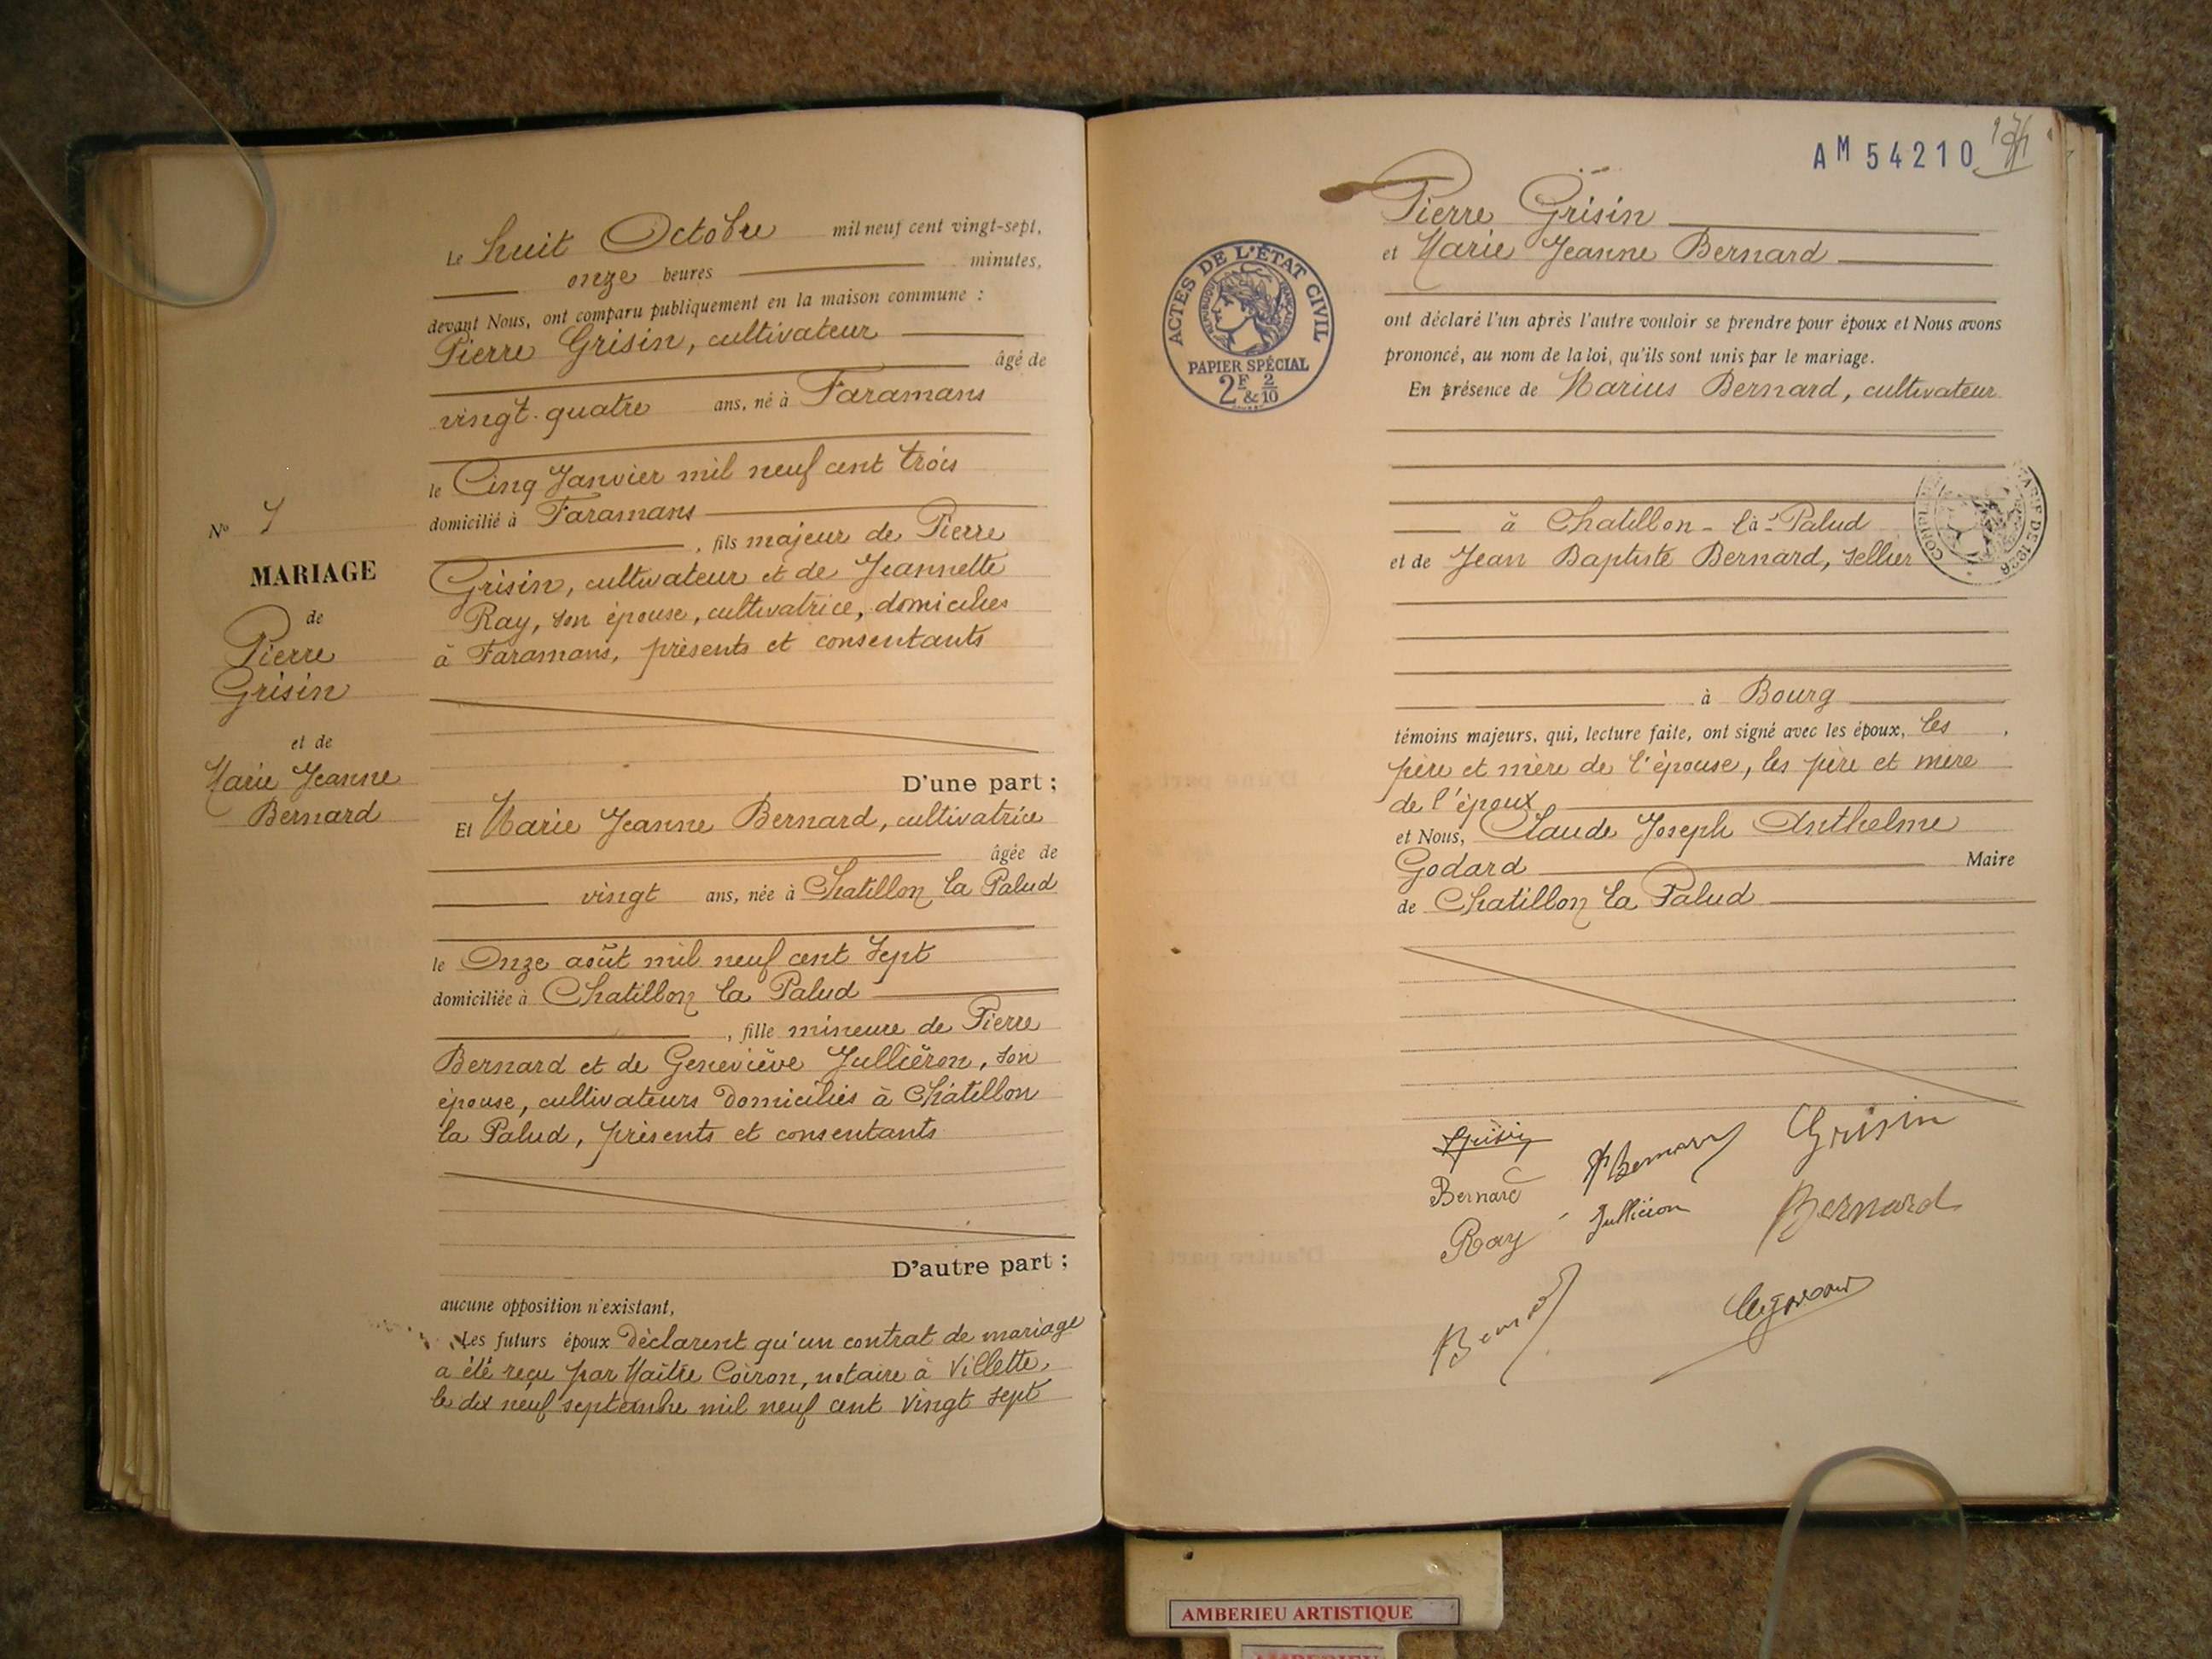 Le huit Octobre mil neuf cent vingt-sept,
onze heures minutes,
devant Nous, ont comparu publiquement en la maison commune :
Pierre Grisin, cultivateur
âgé de
vingt-quatre ans, né à Faramans
le Cinq Janvier mil neuf cent trois
domicilié à Faramans
, fils majeur de Pierre
Grisin, cultivateur et de Jeannette
Ray, son épouse, cultivatrice, domiciliés
à Faramans, présents et consentants
D'une part ;
Et Marie Jeanne Bernard, cultivatrice
âgée de
vingt ans, née à Chatillon la Palud
le Onze août mil neuf cent sept
domiciliée à Chatillon la Palud
, fille mineure de Pierre
Bernard et de Geneviève Julliéron, son
épouse, cultivateurs domiciliés à Châtillon
la Palud, présents et consentants
D'autre part ;
aucune opposition n'existant,
Les futurs époux déclarent qu'un contrat de mariage
a été reçu par Maître Coiron, notaire à Villette,
le dix neuf septembre mil neuf cent vingt sept
No 7
MARIAGE
de
Pierre
Grisin
et de
Marie Jeanne
Bernard
AM 54210
Pierre Grisin
et Marie Jeanne Bernard
ont déclaré l'un après l'autre vouloir se prendre pour époux et Nous avons
prononcé, au nom de la loi, qu'ils sont unis par le mariage.
En présence de Marius Bernard, cultivateur
à Chatillon-la-Palud
et de Jean Baptiste Bernard, sellier
à Bourg
témoins majeurs, qui, lecture faite, ont signé avec les époux, les ,
père et mère de l'épouse, les père et mère
de l'époux
et Nous, Claude Joseph Anthelme
Godard Maire
de Chatillon la Palud
Grisin
Bernard
Ray Jullieron Bernard
ACTES DE L'ÉTAT CIVIL
RÉPUBLIQUE FRANÇAISE
PAPIER SPÉCIAL
2F & 2/10
AMBERIEU ARTISTIQUE
AMBERIEU